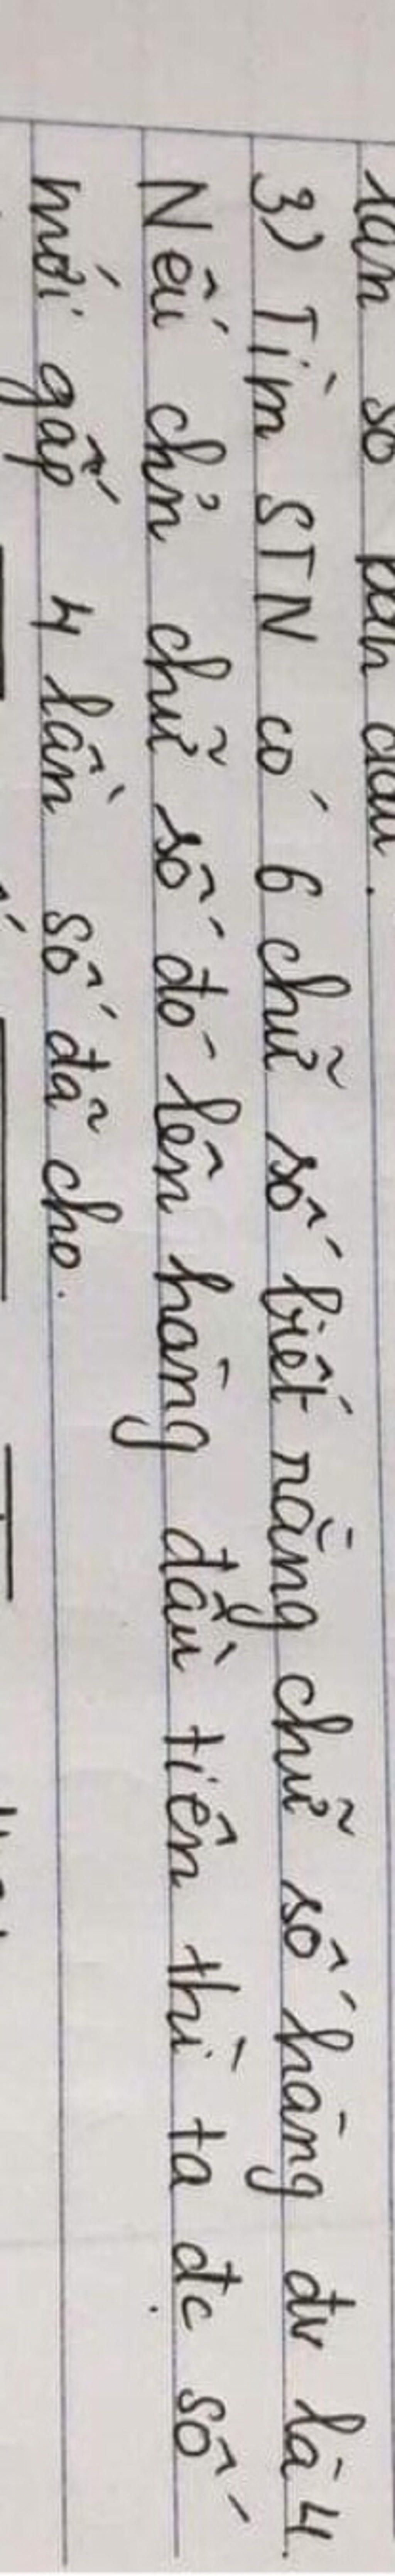 lần số ban đầu.
3) Tìm STN có 6 chữ số biết rằng chữ số hàng đv là 4.
Nếu chn chữ số đó lên hàng đầu tiên thì ta đc số
mới gấp 4 lần số đã cho.